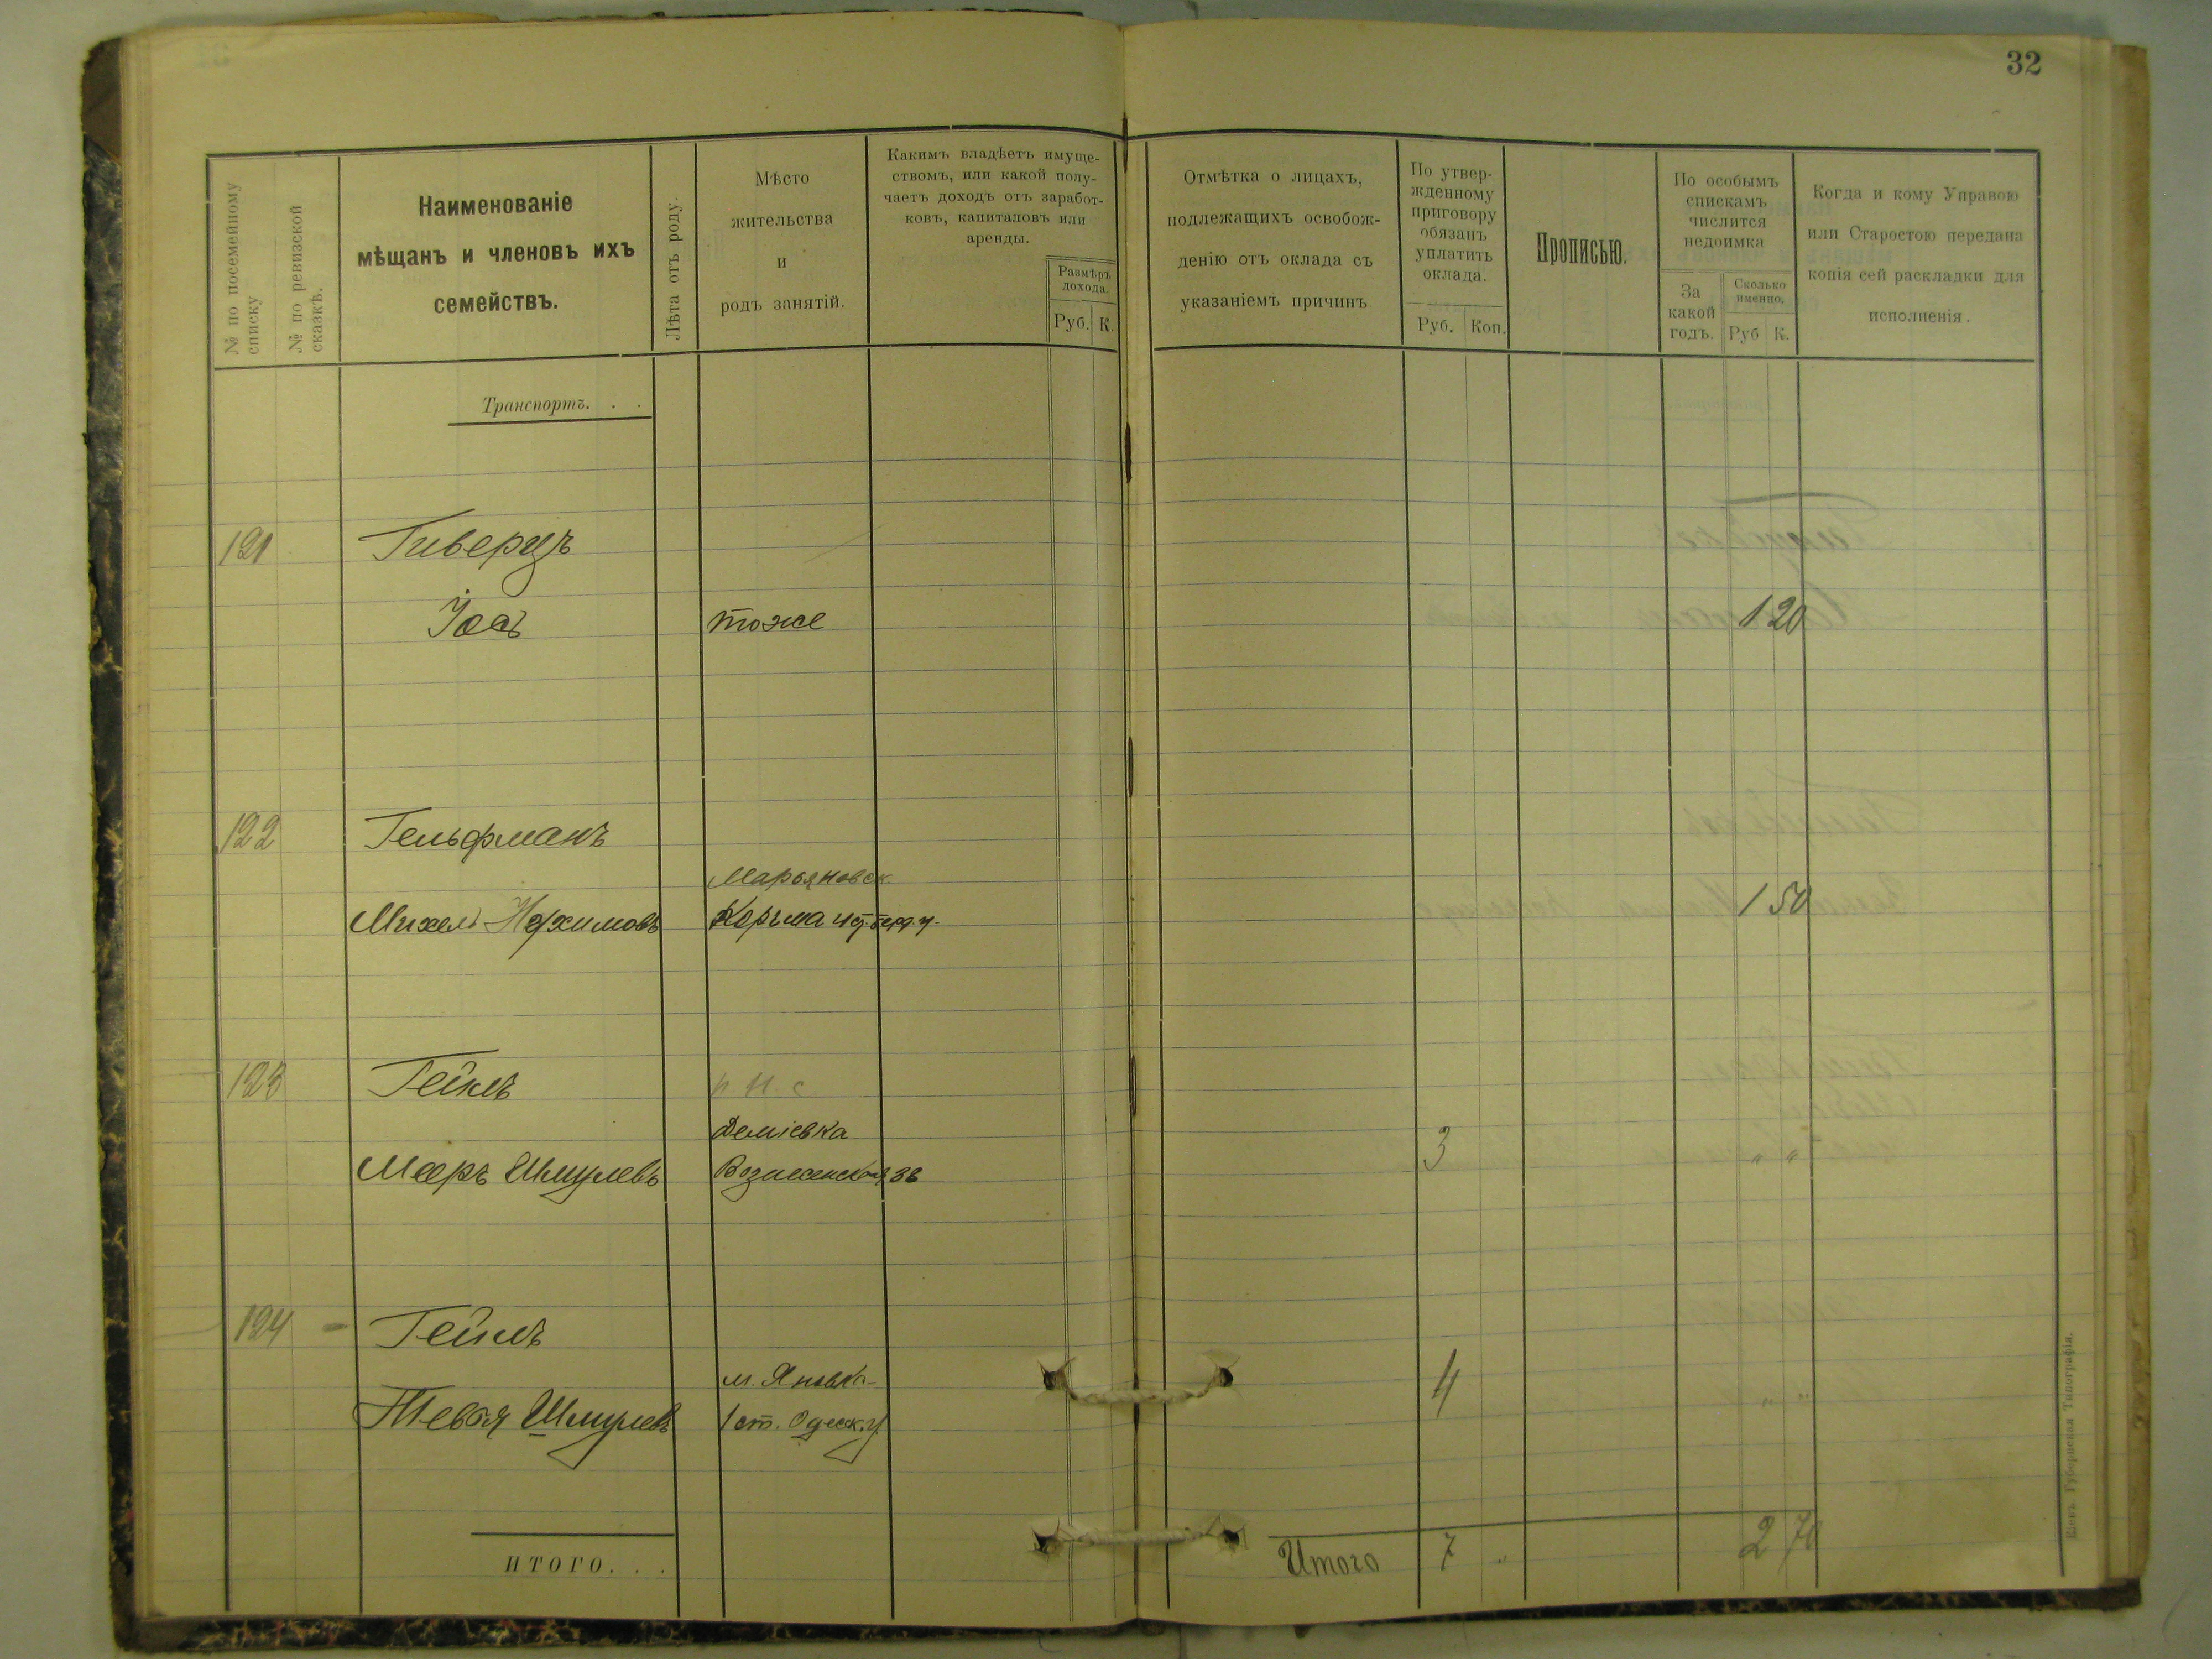 32
№ по посемейному
списку
№ по ревизской
сказкѣ.
Наименованіе
мѣщанъ и членовъ ихъ
семействъ.
Лѣта отъ роду.
Мѣсто
жительства
и
родъ занятій.
Какимъ владѣетъ имуще-
ствомъ, или какой полу-
чаетъ доходъ отъ заработ-
ковъ, капиталовъ или
аренды.
Размѣръ
дохода.
Руб. К.
Отмѣтка о лицахъ,
подлежащихъ освобож-
денію отъ оклада съ
указаніемъ причинъ
По утвер-
жденному
приговору
обязанъ
уплатить
оклада.
Руб. Коп.
Прописью.
По особымъ
спискамъ
числится
недоимка
За
какой
годъ.
Сколько
именно.
Руб К.
Когда и кому Управою
или Старостою передана
копія сей раскладки для
исполненія.
Транспортъ. . .
121 Гиверцъ
Іосъ тоже 1 20
122 Гельфманъ
Марьяновск.
Михель Нахимовъ Корчма 1 50
123 Гейкъ
Деміевка
Мееръ Шмулевъ 38 3 " "
124 Гейкъ
м. Яновка
Тевья Шмулевъ 1 ст. Одесск. у. 4 " "
ИТОГО. . .
Итого 7 " 2 70
Кіевъ. Губернская Типографія.